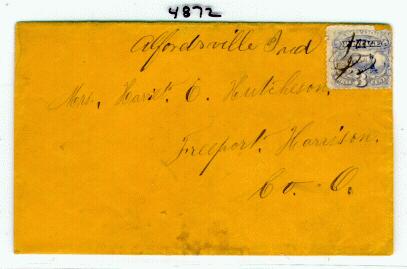 4872
Alfordsville Ind
Mrs. Hariet. E. Hutcheson.
Freeport. Harrison.
Co. O.
3